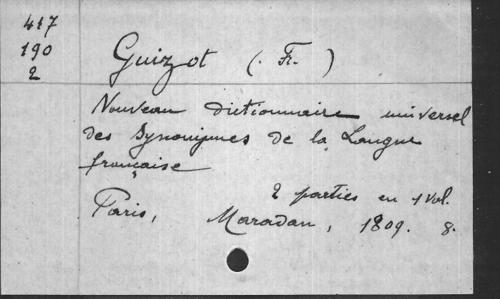 417
190
2
Guizot (. Fr. )
Nouveau dictionnaire universel
des Synonymes de la Langue
française
2 parties en 1 vol.
Paris, Maradan, 1809. 8.